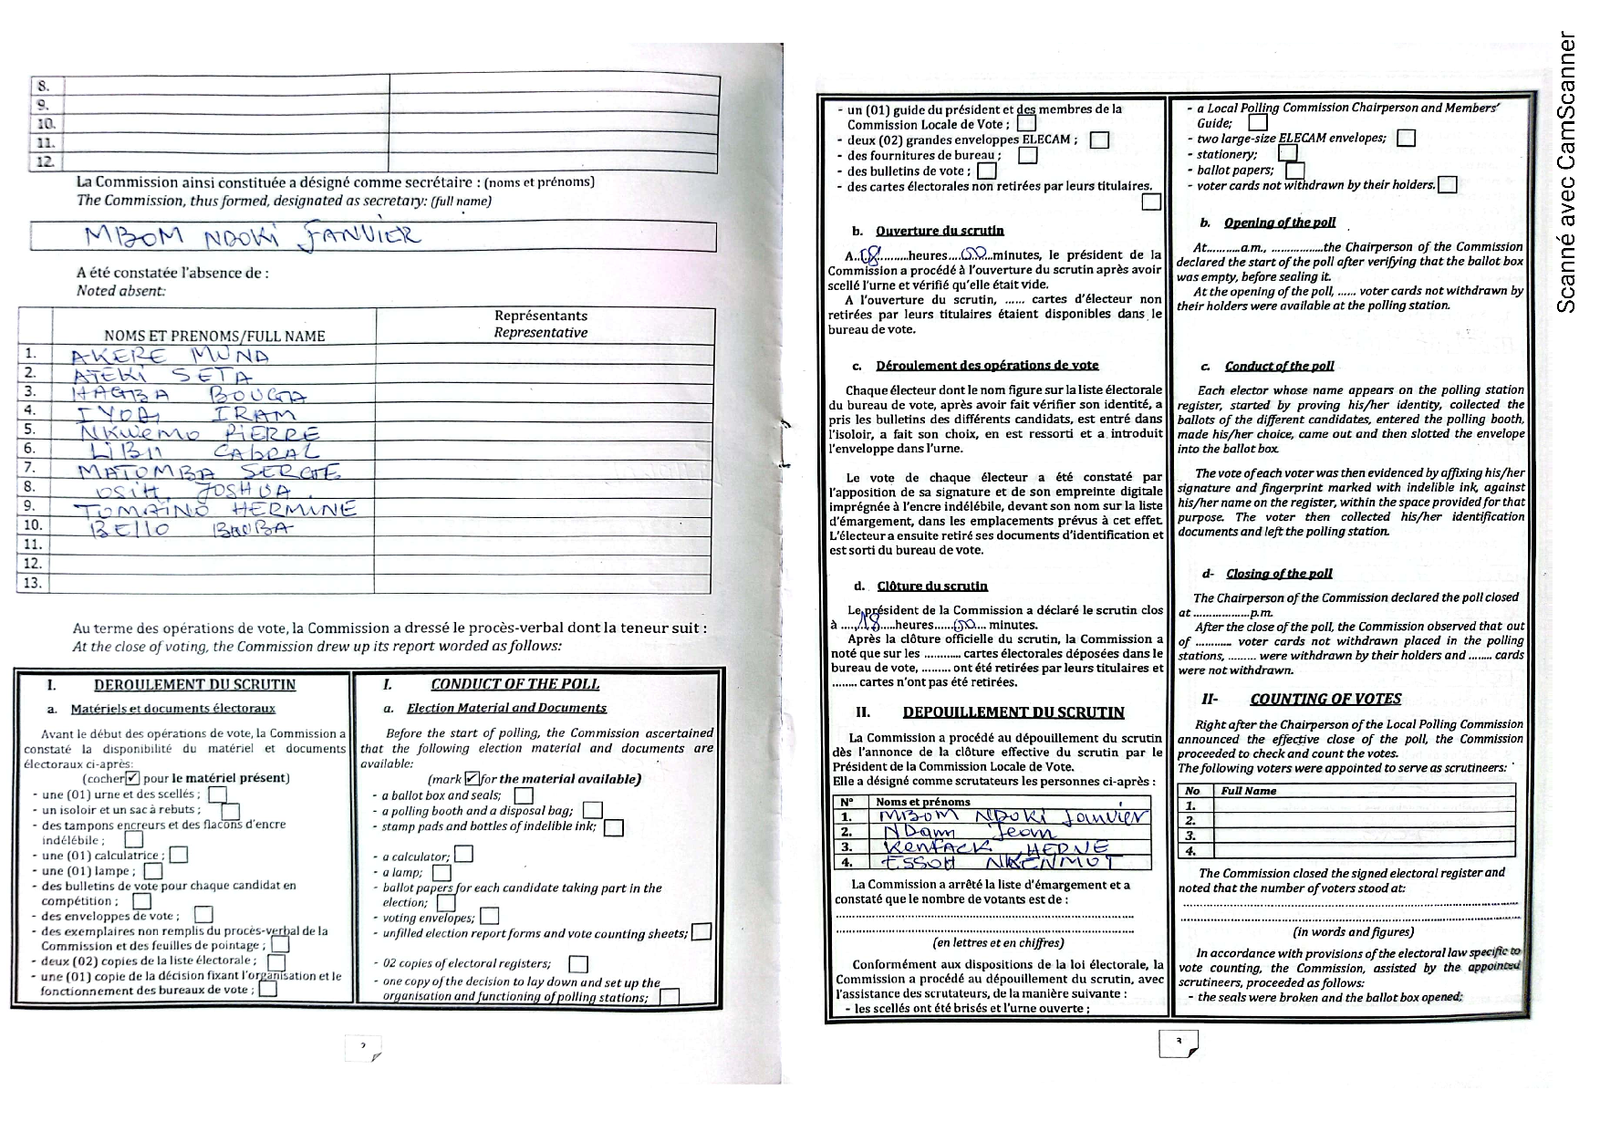 8.
9.
10.
11.
12.
La Commission ainsi constituée a désigné comme secrétaire : (noms et prénoms)
The Commission, thus formed, designated as secretary: (full name)
MBOM NDOKI JANVIER
A été constatée l'absence de :
Noted absent:
NOMS ET PRENOMS/FULL NAME
Représentants
Representative
1. AKERE MUNA
2. ATEKI SETA
3. HAGBA BOUGTA
4. IYODI IRAM
5. NKWEMO PIERRE
6. LIBII CABRAL
7. MATOMBA SERGE
8. OSIH JOSHUA
9. TOMAÏNO HERMINE
10. BELLO BOUBA
11.
12.
13.
Au terme des opérations de vote, la Commission a dressé le procès-verbal dont la teneur suit :
At the close of voting, the Commission drew up its report worded as follows:
I. DEROULEMENT DU SCRUTIN
a. Matériels et documents électoraux
Avant le début des opérations de vote, la Commission a
constaté la disponibilité du matériel et documents
électoraux ci-après:
(cocher ✓ pour le matériel présent)
- une (01) urne et des scellés ;
- un isoloir et un sac à rebuts ;
- des tampons encreurs et des flacons d'encre
indélébile ;
- une (01) calculatrice ;
- une (01) lampe ;
- des bulletins de vote pour chaque candidat en
compétition ;
- des enveloppes de vote ;
- des exemplaires non remplis du procès-verbal de la
Commission et des feuilles de pointage ;
- deux (02) copies de la liste électorale ;
- une (01) copie de la décision fixant l'organisation et le
fonctionnement des bureaux de vote ;
I. CONDUCT OF THE POLL
a. Election Material and Documents
Before the start of polling, the Commission ascertained
that the following election material and documents are
available:
(mark ✓ for the material available)
- a ballot box and seals;
- a polling booth and a disposal bag;
- stamp pads and bottles of indelible ink;
- a calculator;
- a lamp;
- ballot papers for each candidate taking part in the
election;
- voting envelopes;
- unfilled election report forms and vote counting sheets;
- 02 copies of electoral registers;
- one copy of the decision to lay down and set up the
organisation and functioning of polling stations;
2
- un (01) guide du président et des membres de la
Commission Locale de Vote ;
- deux (02) grandes enveloppes ELECAM ;
- des fournitures de bureau ;
- des bulletins de vote ;
- des cartes électorales non retirées par leurs titulaires.
b. Ouverture du scrutin
A..08..........heures....00.....minutes, le président de la
Commission a procédé à l'ouverture du scrutin après avoir
scellé l'urne et vérifié qu'elle était vide.
A l'ouverture du scrutin, ...... cartes d'électeur non
retirées par leurs titulaires étaient disponibles dans le
bureau de vote.
c. Déroulement des opérations de vote
Chaque électeur dont le nom figure sur la liste électorale
du bureau de vote, après avoir fait vérifier son identité, a
pris les bulletins des différents candidats, est entré dans
l'isoloir, a fait son choix, en est ressorti et a introduit
l'enveloppe dans l'urne.
Le vote de chaque électeur a été constaté par
l'apposition de sa signature et de son empreinte digitale
imprégnée à l'encre indélébile, devant son nom sur la liste
d'émargement, dans les emplacements prévus à cet effet.
L'électeur a ensuite retiré ses documents d'identification et
est sorti du bureau de vote.
d. Clôture du scrutin
Le président de la Commission a déclaré le scrutin clos
à ....18.....heures......00.... minutes.
Après la clôture officielle du scrutin, la Commission a
noté que sur les ............ cartes électorales déposées dans le
bureau de vote, ......... ont été retirées par leurs titulaires et
........ cartes n'ont pas été retirées.
II. DEPOUILLEMENT DU SCRUTIN
La Commission a procédé au dépouillement du scrutin
dès l'annonce de la clôture effective du scrutin par le
Président de la Commission Locale de Vote.
Elle a désigné comme scrutateurs les personnes ci-après :
N° Noms et prénoms
1. MBOM NDOKI Janvier
2. NDamn Jean
3. KenFACK HERVE
4. ESSOH NKENMOT
La Commission a arrêté la liste d'émargement et a
constaté que le nombre de votants est de :
(en lettres et en chiffres)
Conformément aux dispositions de la loi électorale, la
Commission a procédé au dépouillement du scrutin, avec
l'assistance des scrutateurs, de la manière suivante :
- les scellés ont été brisés et l'urne ouverte ;
- a Local Polling Commission Chairperson and Members'
Guide;
- two large-size ELECAM envelopes;
- stationery;
- ballot papers;
- voter cards not withdrawn by their holders.
b. Opening of the poll
At..........a.m., ................the Chairperson of the Commission
declared the start of the poll after verifying that the ballot box
was empty, before sealing it.
At the opening of the poll, ...... voter cards not withdrawn by
their holders were available at the polling station.
c. Conduct of the poll
Each elector whose name appears on the polling station
register, started by proving his/her identity, collected the
ballots of the different candidates, entered the polling booth,
made his/her choice, came out and then slotted the envelope
into the ballot box.
The vote of each voter was then evidenced by affixing his/her
signature and fingerprint marked with indelible ink, against
his/her name on the register, within the space provided for that
purpose. The voter then collected his/her identification
documents and left the polling station.
d- Closing of the poll
The Chairperson of the Commission declared the poll closed
at .................p.m.
After the close of the poll, the Commission observed that out
of ........... voter cards not withdrawn placed in the polling
stations, ......... were withdrawn by their holders and ........ cards
were not withdrawn.
II- COUNTING OF VOTES
Right after the Chairperson of the Local Polling Commission
announced the effective close of the poll, the Commission
proceeded to check and count the votes.
The following voters were appointed to serve as scrutineers:
No Full Name
1.
2.
3.
4.
The Commission closed the signed electoral register and
noted that the number of voters stood at:
(in words and figures)
In accordance with provisions of the electoral law specific to
vote counting, the Commission, assisted by the appointed
scrutineers, proceeded as follows:
- the seals were broken and the ballot box opened;
3
Scanné avec CamScanner